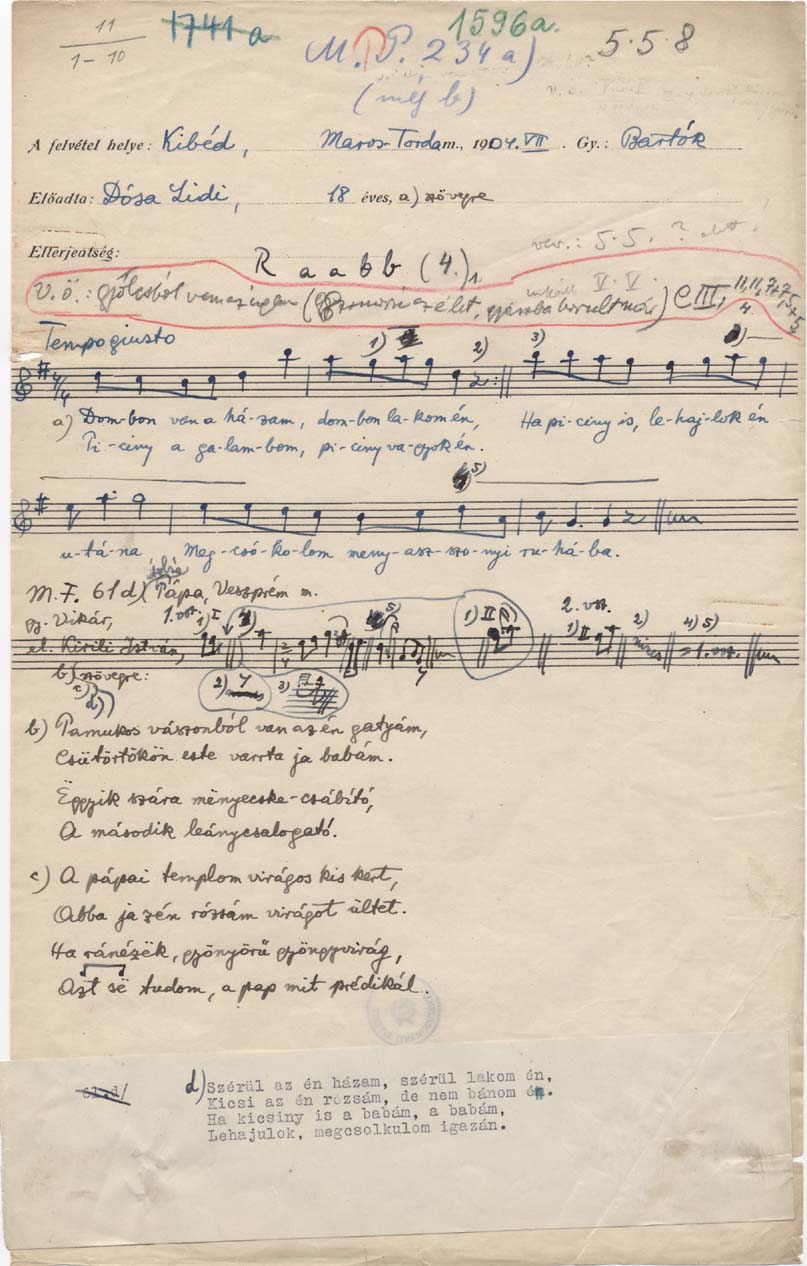 11
1741a
1596a.
1-10
M.P.P. 234a)
5.5.8
(még b)
A felvétel helye: Kibéd, Maros-Torda m., 1904.VII. Gy.: Bartók
Előadta: Dósa Lidi, 18 éves, a) szövegre
var.: 5.5. ?
Elterjedtség: R a a b b (4.)
inkább V. V.
V.ö.: gyolcsból van az ingem (szomorú az élet, gyászba borult már) C III, 11,11,7+7,5+5
4.
Tempo giusto
1) 2) 3)
4/4
a) Dom-bon van a há-zam, dom-bon la-kom én, Ha pi-ciny is, le-haj-lok én
Pi-ciny a ga-lam-bom, pi-ciny va-gyok én.
5)
u-tá-na Meg-csó-ko-lom meny-asz-szo-nyi ru-há-ba.
M.F. 61d) Pápa, Veszprém m.
gy. Vikár,
1. vsz. 1) I 4) 5) 1) II 2. vsz. 1) II 2) nincs 4) 5) = 1. vsz.
el. Kirili István,
b) szövegre:
c)
d)
2) 3)
b) Pamukos vászonból van az én gatyám,
Csütörtökön este varrta ja babám.
Ëggyik szára mënyecske-csábító,
A második leánycsalogató.
c) A pápai templom virágos kis kert,
Abba ja zén rózsám virágot ültet.
Ha ránézëk, gyönyörű gyöngyvirág,
Azt së tudom, a pap mit prédikál.
61.d/
d) Szérül az én házam, szérül lakom én,
Kicsi az én rózsám, de nem bánom én.
Ha kicsiny is a babám, a babám,
Lehajulok, megcsolkulom igazán.